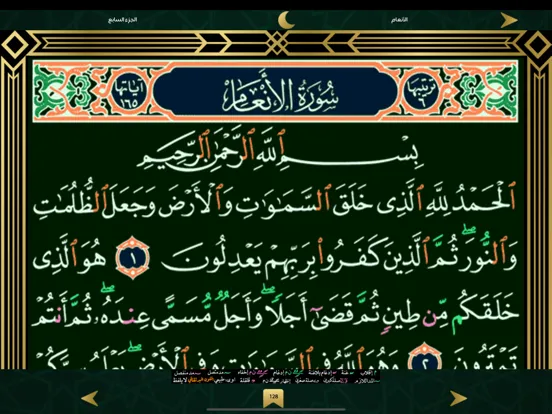 الأنعام
الجزء السابع
ترتيبها ٦
سُورَةُ الأَنْعَامِ
آياتها ١٦٥
بِسْمِ اللَّهِ الرَّحْمَٰنِ الرَّحِيمِ
الْحَمْدُ لِلَّهِ الَّذِي خَلَقَ السَّمَٰوَٰتِ وَالْأَرْضَ وَجَعَلَ الظُّلُمَٰتِ
وَالنُّورَ ۖ ثُمَّ الَّذِينَ كَفَرُوا بِرَبِّهِمْ يَعْدِلُونَ ١ هُوَ الَّذِي
خَلَقَكُم مِّن طِينٍ ثُمَّ قَضَىٰٓ أَجَلًا ۖ وَأَجَلٌ مُّسَمًّى عِندَهُۥ ۖ ثُمَّ أَنتُمْ
تَمْتَرُونَ ٢ وَهُوَ اللَّهُ فِي السَّمَٰوَٰتِ وَفِي الْأَرْضِ ۖ يَعْلَمُ
128